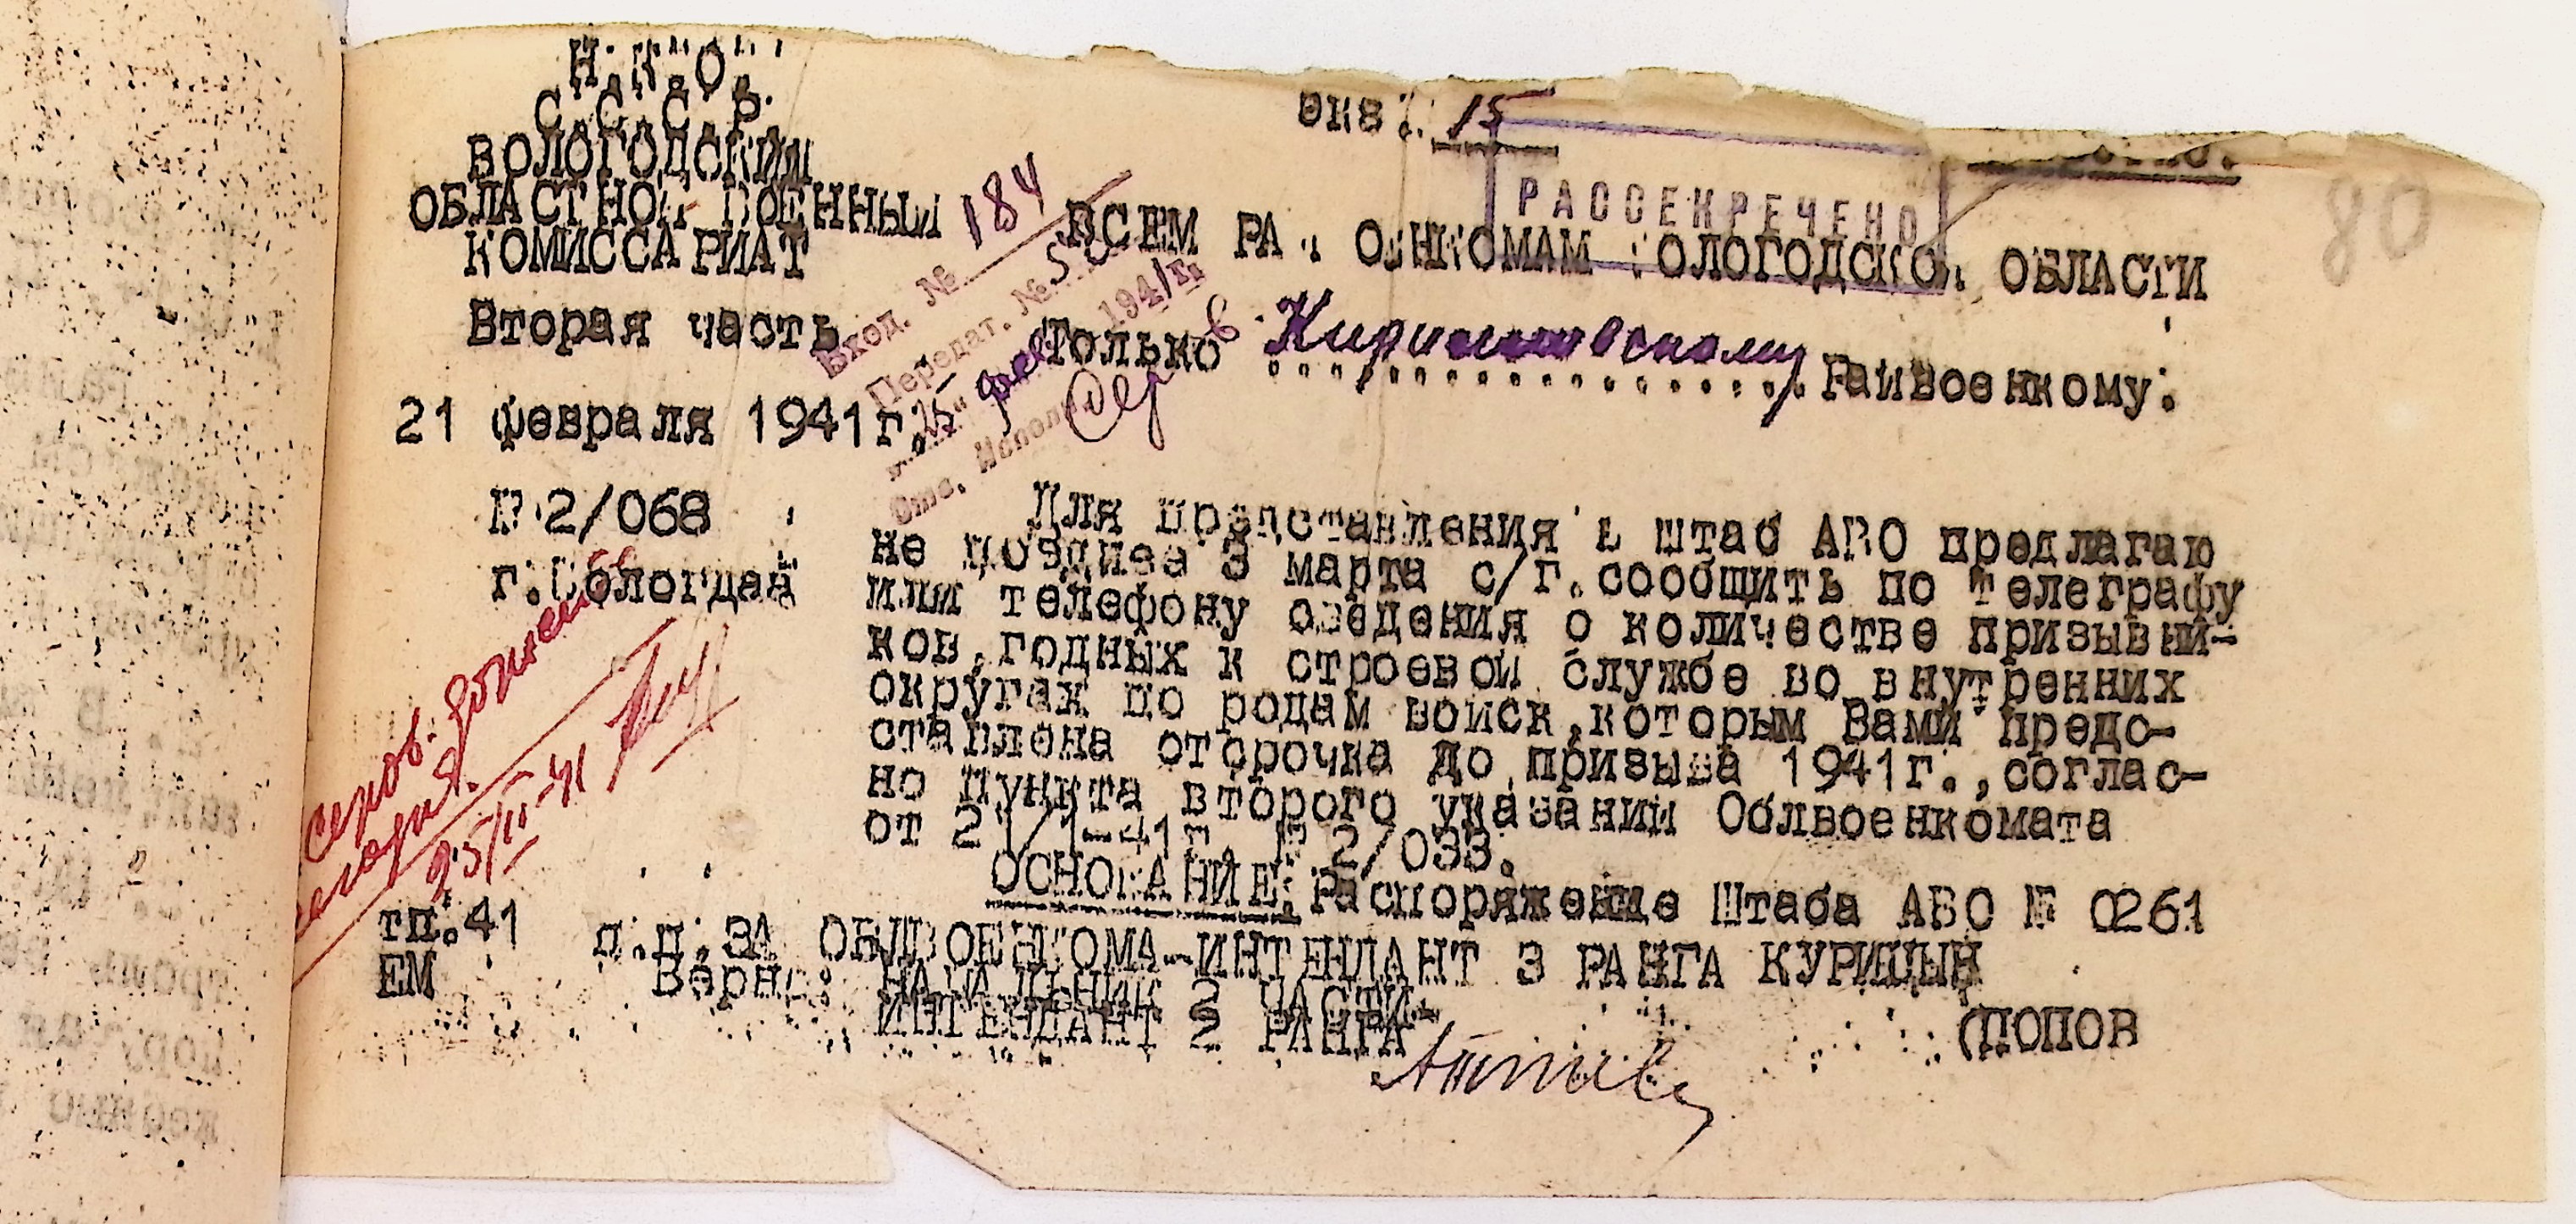 Н.К.О.
С.С.С.Р.
ВОЛОГОДСКИЙ
ОБЛАСТНОЙ ВОЕННЫЙ
КОМИССАРИАТ
Вторая часть
21 февраля 1941г.
№ 2/068
г.Вологда
экз. 15
РАССЕКРЕЧЕНО
80
ВСЕМ РАЙВОЕНКОМАМ ВОЛОГОДСКОЙ ОБЛАСТИ
Только Кирилловскому Райвоенкому:
Вход. № 184
Перепат. № 5
25 фев 1941 г.
Отв. Исполн.
Для представления в штаб АВО предлагаю
не позднее 3 марта с/г.сообщить по телеграфу
или телефону сведения о количестве призывни-
ков,годных к строевой службе во внутренних
округах по родам войск,которым Вами предо-
ставлена отсрочка до призыва 1941г.,соглас-
но пункта второго указаний Облвоенкомата
от 21/1-41г. № 2/033.
ОСНОВАНИЕ:Распоряжение Штаба АВО № 0261
25/II-41
тп.41
ЕМ
п.п.ЗА ОБЛВОЕНКОМА-ИНТЕНДАНТ 3 РАНГА КУРИЦЫН
Верно: НАЧАЛЬНИК 2 ЧАСТИ-
ИНТЕНДАНТ 2 РАНГА
(ПОПОВ